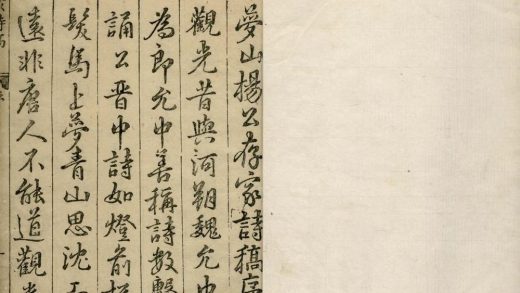 夢山楊公存家詩稿序
觀光昔與河朔魏允中
為郎允中善稱詩數
誦公晉中詩如燈前
髮馬上夢青山思沈
遠非唐人不能道觀光